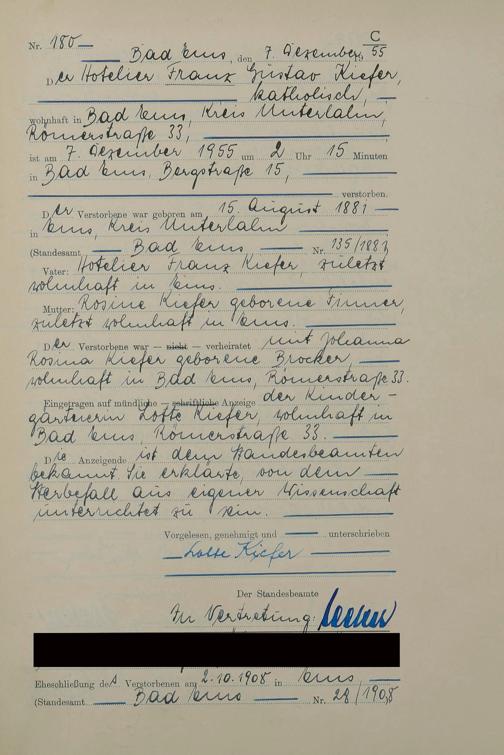 C
Nr. 180
Bad Ems, den 7. Dezember 19 55
Der Hotelier Franz Gustav Kiefer,
katholisch,
wohnhaft in Bad Ems, Kreis Unterlahn,
Römerstraße 33,
ist am 7. Dezember 1955 um 2 Uhr 15 Minuten
in Bad Ems, Bergstraße 15,
verstorben.
Der Verstorbene war geboren am 15. August 1881
in Ems, Kreis Unterlahn
(Standesamt Bad Ems Nr. 135/1881
Vater: Hotelier Franz Kiefer, zuletzt
wohnhaft in Ems.
Mutter: Rosine Kiefer geborene
zuletzt wohnhaft in Ems.
Der Verstorbene war — nicht — verheiratet mit Johanna
Rosina Kiefer geborene Brocker,
wohnhaft in Bad Ems, Römerstraße 33.
Eingetragen auf mündliche — schriftliche Anzeige der Kinder-
gärtnerin Lotte Kiefer, wohnhaft in
Bad Ems, Römerstraße 33.
Die Anzeigende ist dem Standesbeamten
bekannt. Sie erklärte, von dem
Sterbefall aus eigener Wissenschaft
unterrichtet zu sein.
Vorgelesen, genehmigt und unterschrieben
Lotte Kiefer
Der Standesbeamte
In Vertretung:
Eheschließung des Verstorbenen am 2.10.1908 in Ems,
(Standesamt Bad Ems Nr. 28/1908